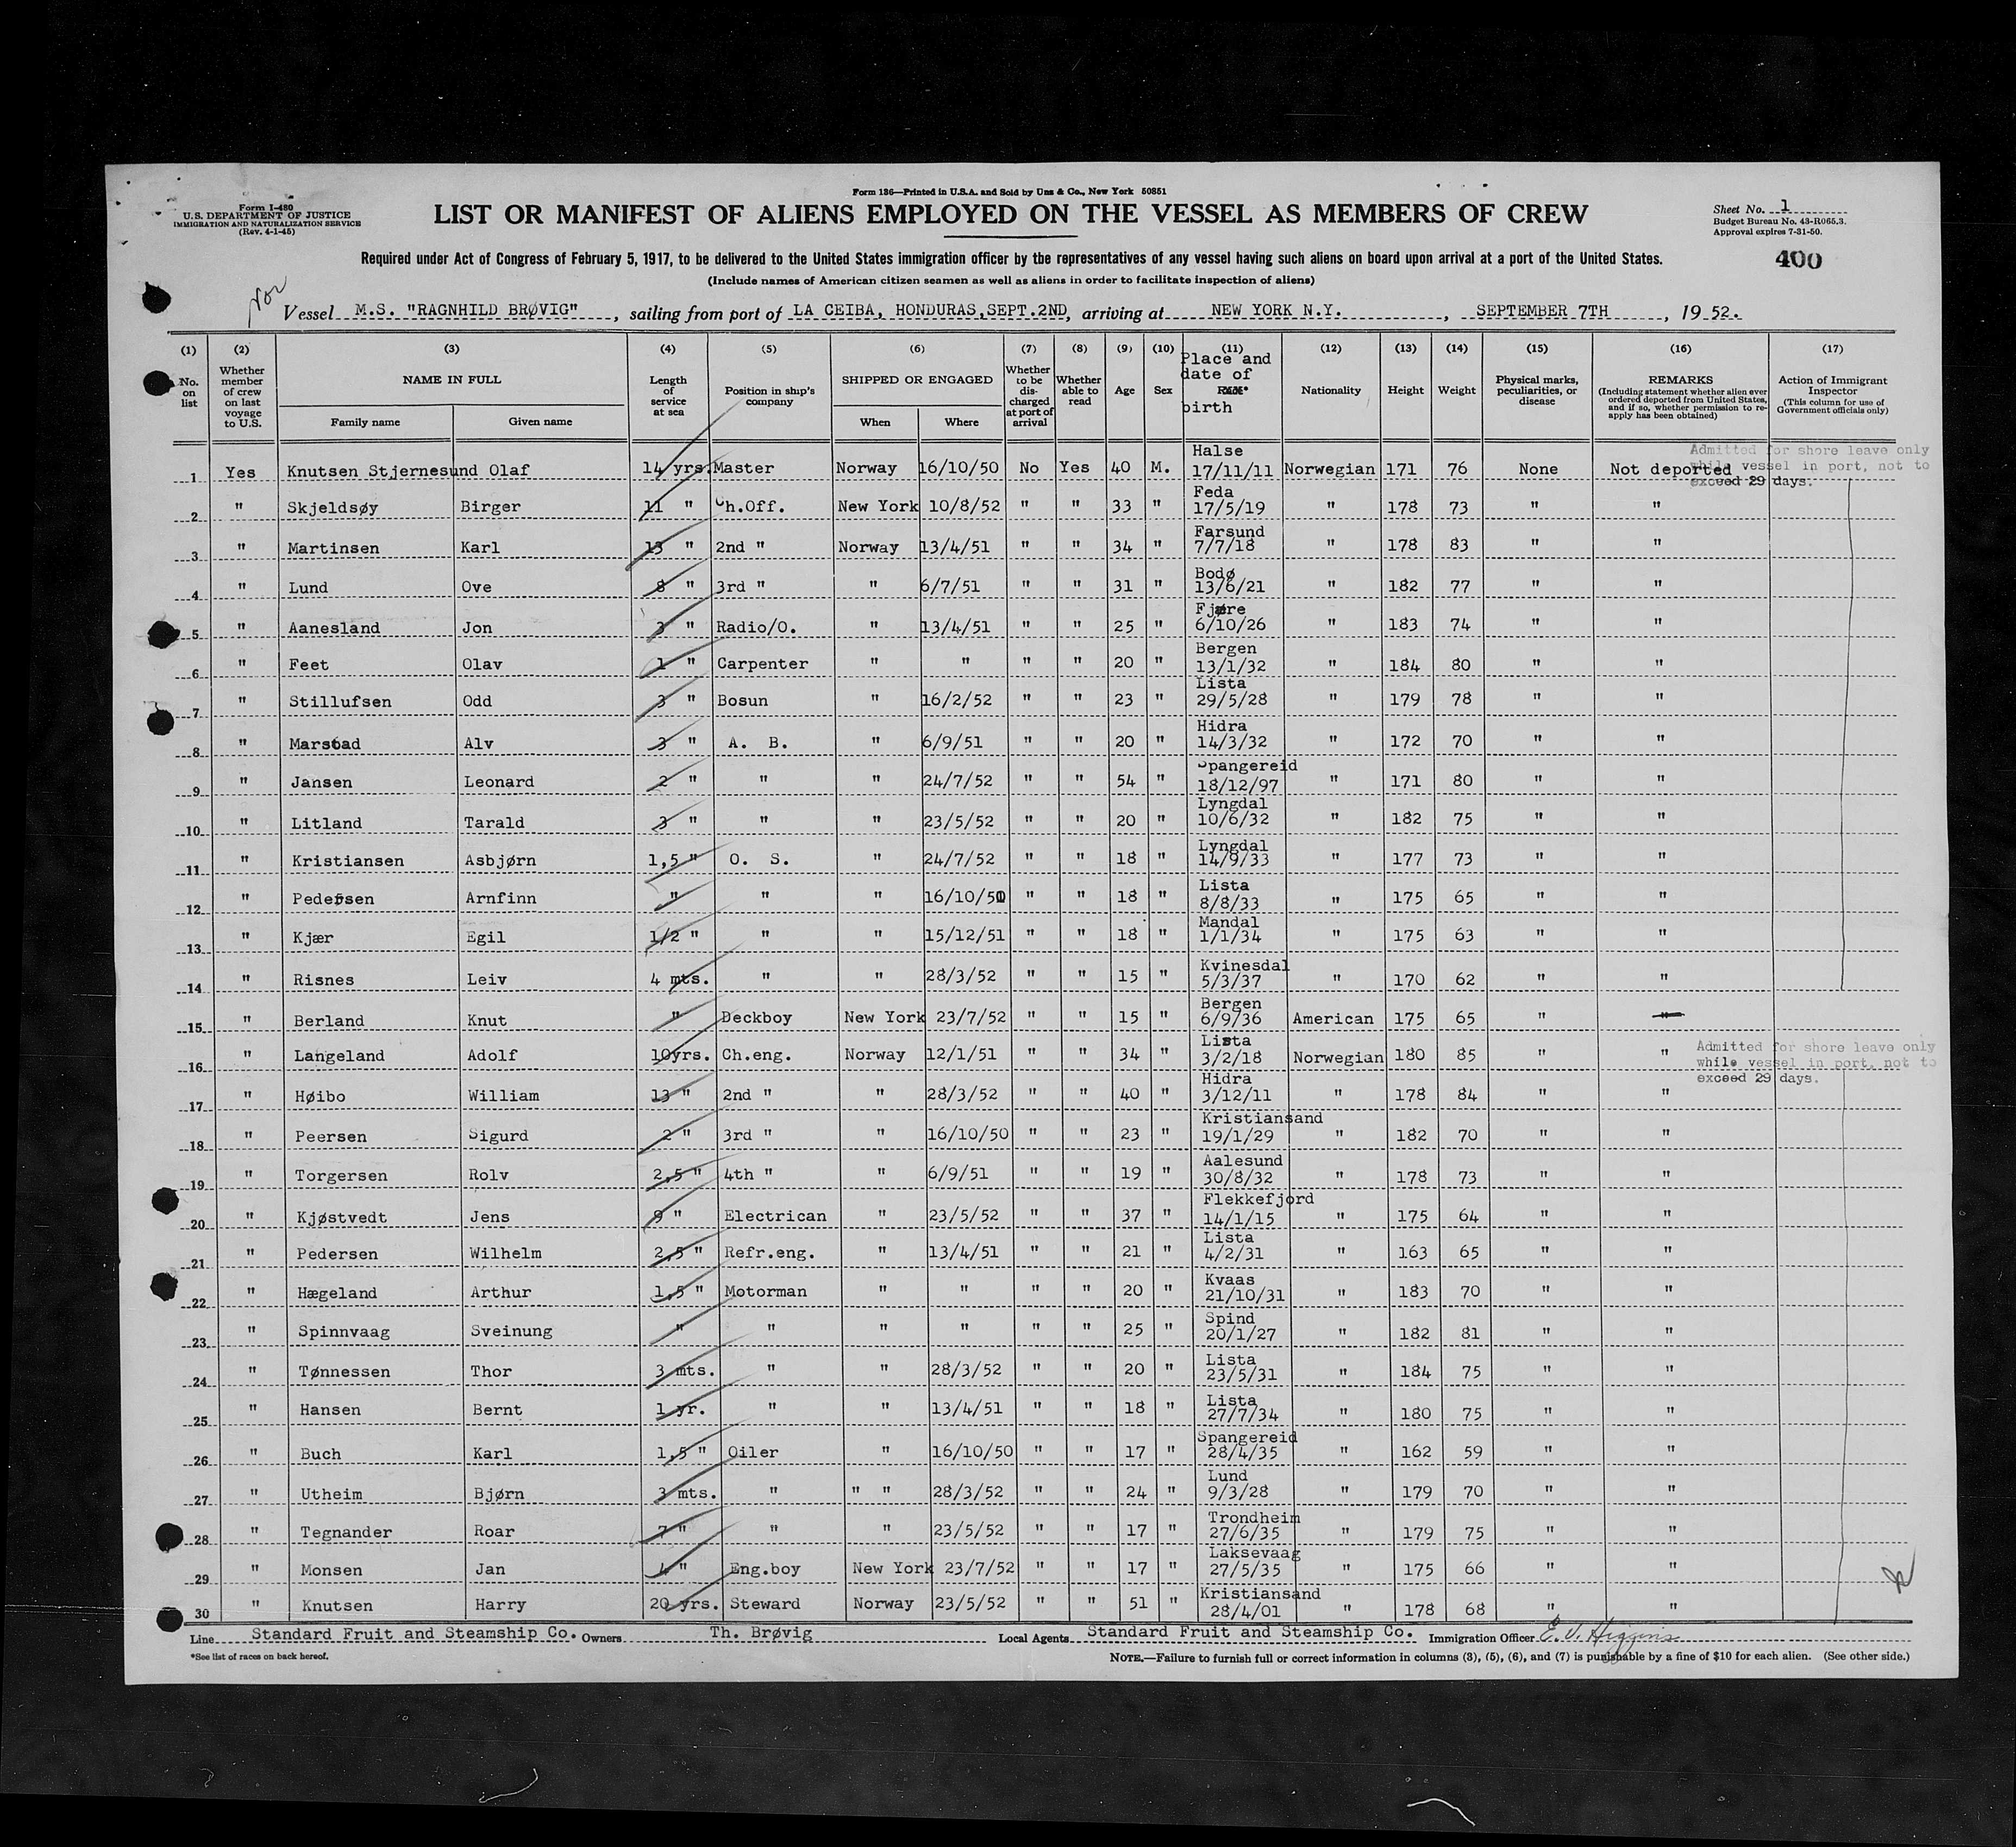 Form 136—Printed in U.S.A. and Sold by Unz & Co., New York 50851
Form I-480
U.S. DEPARTMENT OF JUSTICE
IMMIGRATION AND NATURALIZATION SERVICE
(Rev. 4-1-45)
LIST OR MANIFEST OF ALIENS EMPLOYED ON THE VESSEL AS MEMBERS OF CREW
Sheet No. 1
Budget Bureau No. 43-R065.3.
Approval expires 7-31-50.
400
Required under Act of Congress of February 5, 1917, to be delivered to the United States immigration officer by the representatives of any vessel having such aliens on board upon arrival at a port of the United States.
(Include names of American citizen seamen as well as aliens in order to facilitate inspection of aliens)
Nor
Vessel M.S. "RAGNHILD BRØVIG", sailing from port of LA CEIBA, HONDURAS, SEPT.2ND, arriving at NEW YORK N.Y., SEPTEMBER 7TH, 1952.
(1) (2) (3) (4) (5) (6) (7) (8) (9) (10) (11) (12) (13) (14) (15) (16) (17)
No. on list
Whether member of crew on last voyage to U.S.
NAME IN FULL
Family name
Given name
Length of service at sea
Position in ship's company
SHIPPED OR ENGAGED
When
Where
Whether to be discharged at port of arrival
Whether able to read
Age
Sex
Place and date of birth
Nationality
Height
Weight
Physical marks, peculiarities, or disease
REMARKS
(Including statement whether alien ever ordered deported from United States, and if so, whether permission to reapply has been obtained)
Action of Immigrant Inspector
(This column for use of Government officials only)
Admitted for shore leave only while vessel in port, not to exceed 29 days.
1 Yes Knutsen Stjernesund Olaf 14 yrs. Master Norway 16/10/50 No Yes 40 M. Halse 17/11/11 Norwegian 171 76 None Not deported
2 " Skjeldsøy Birger 11 " Ch.Off. New York 10/8/52 " " 33 " Feda 17/5/19 " 178 73 " "
3 " Martinsen Karl 13 " 2nd " Norway 13/4/51 " " 34 " Farsund 7/7/18 " 178 83 " "
4 " Lund Ove 8 " 3rd " " 6/7/51 " " 31 " Bodø 13/6/21 " 182 77 " "
5 " Aanesland Jon 3 " Radio/O. " 13/4/51 " " 25 " Fjære 6/10/26 " 183 74 " "
6 " Feet Olav 1 " Carpenter " " " " 20 " Bergen 13/1/32 " 184 80 " "
7 " Stillufsen Odd 3 " Bosun " 16/2/52 " " 23 " Lista 29/5/28 " 179 78 " "
8 " Marstad Alv 3 " A. B. " 6/9/51 " " 20 " Hidra 14/3/32 " 172 70 " "
9 " Jansen Leonard 2 " " " 24/7/52 " " 54 " Spangereid 18/12/97 " 171 80 " "
10 " Litland Tarald 3 " " " 23/5/52 " " 20 " Lyngdal 10/6/32 " 182 75 " "
11 " Kristiansen Asbjørn 1,5 " O. S. " 24/7/52 " " 18 " Lyngdal 14/9/33 " 177 73 " "
12 " Pedersen Arnfinn " " " 16/10/50 " " 18 " Lista 8/8/33 " 175 65 " "
13 " Kjær Egil 1/2 " " " 15/12/51 " " 18 " Mandal 1/1/34 " 175 63 " "
14 " Risnes Leiv 4 mts. " " 28/3/52 " " 15 " Kvinesdal 5/3/37 " 170 62 " "
15 " Berland Knut " Deckboy New York 23/7/52 " " 15 " Bergen 6/9/36 American 175 65 " "
16 " Langeland Adolf 10yrs. Ch.eng. Norway 12/1/51 " " 34 " Lista 3/2/18 Norwegian 180 85 " "
Admitted for shore leave only while vessel in port, not to exceed 29 days.
17 " Høibo William 13 " 2nd " " 28/3/52 " " 40 " Hidra 3/12/11 " 178 84 " "
18 " Peersen Sigurd 2 " 3rd " " 16/10/50 " " 23 " Kristiansand 19/1/29 " 182 70 " "
19 " Torgersen Rolv 2,5 " 4th " " 6/9/51 " " 19 " Aalesund 30/8/32 " 178 73 " "
20 " Kjøstvedt Jens 9 " Electrican " 23/5/52 " " 37 " Flekkefjord 14/1/15 " 175 64 " "
21 " Pedersen Wilhelm 2,5 " Refr.eng. " 13/4/51 " " 21 " Lista 4/2/31 " 163 65 " "
22 " Hægeland Arthur 1,5 " Motorman " " " " 20 " Kvaas 21/10/31 " 183 70 " "
23 " Spinnvaag Sveinung " " " " " " 25 " Spind 20/1/27 " 182 81 " "
24 " Tønnessen Thor 3 mts. " " 28/3/52 " " 20 " Lista 23/5/31 " 184 75 " "
25 " Hansen Bernt 1 yr. " " 13/4/51 " " 18 " Lista 27/7/34 " 180 75 " "
26 " Buch Karl 1,5 " Oiler " 16/10/50 " " 17 " Spangereid 28/4/35 " 162 59 " "
27 " Utheim Bjørn 3 mts. " " " 28/3/52 " " 24 " Lund 9/3/28 " 179 70 " "
28 " Tegnander Roar 7 " " " 23/5/52 " " 17 " Trondheim 27/6/35 " 179 75 " "
29 " Monsen Jan 4 " Eng.boy New York 23/7/52 " " 17 " Laksevaag 27/5/35 " 175 66 " "
30 " Knutsen Harry 20 yrs. Steward Norway 23/5/52 " " 51 " Kristiansand 28/4/01 " 178 68 " "
Line Standard Fruit and Steamship Co. Owners Th. Brøvig Local Agents Standard Fruit and Steamship Co. Immigration Officer E. J. Higgins
*See list of races on back hereof.
NOTE.—Failure to furnish full or correct information in columns (3), (5), (6), and (7) is punishable by a fine of $10 for each alien. (See other side.)